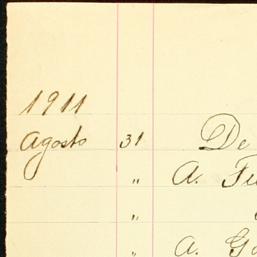 1911
Agosto 31 De
" A.
"
" A.